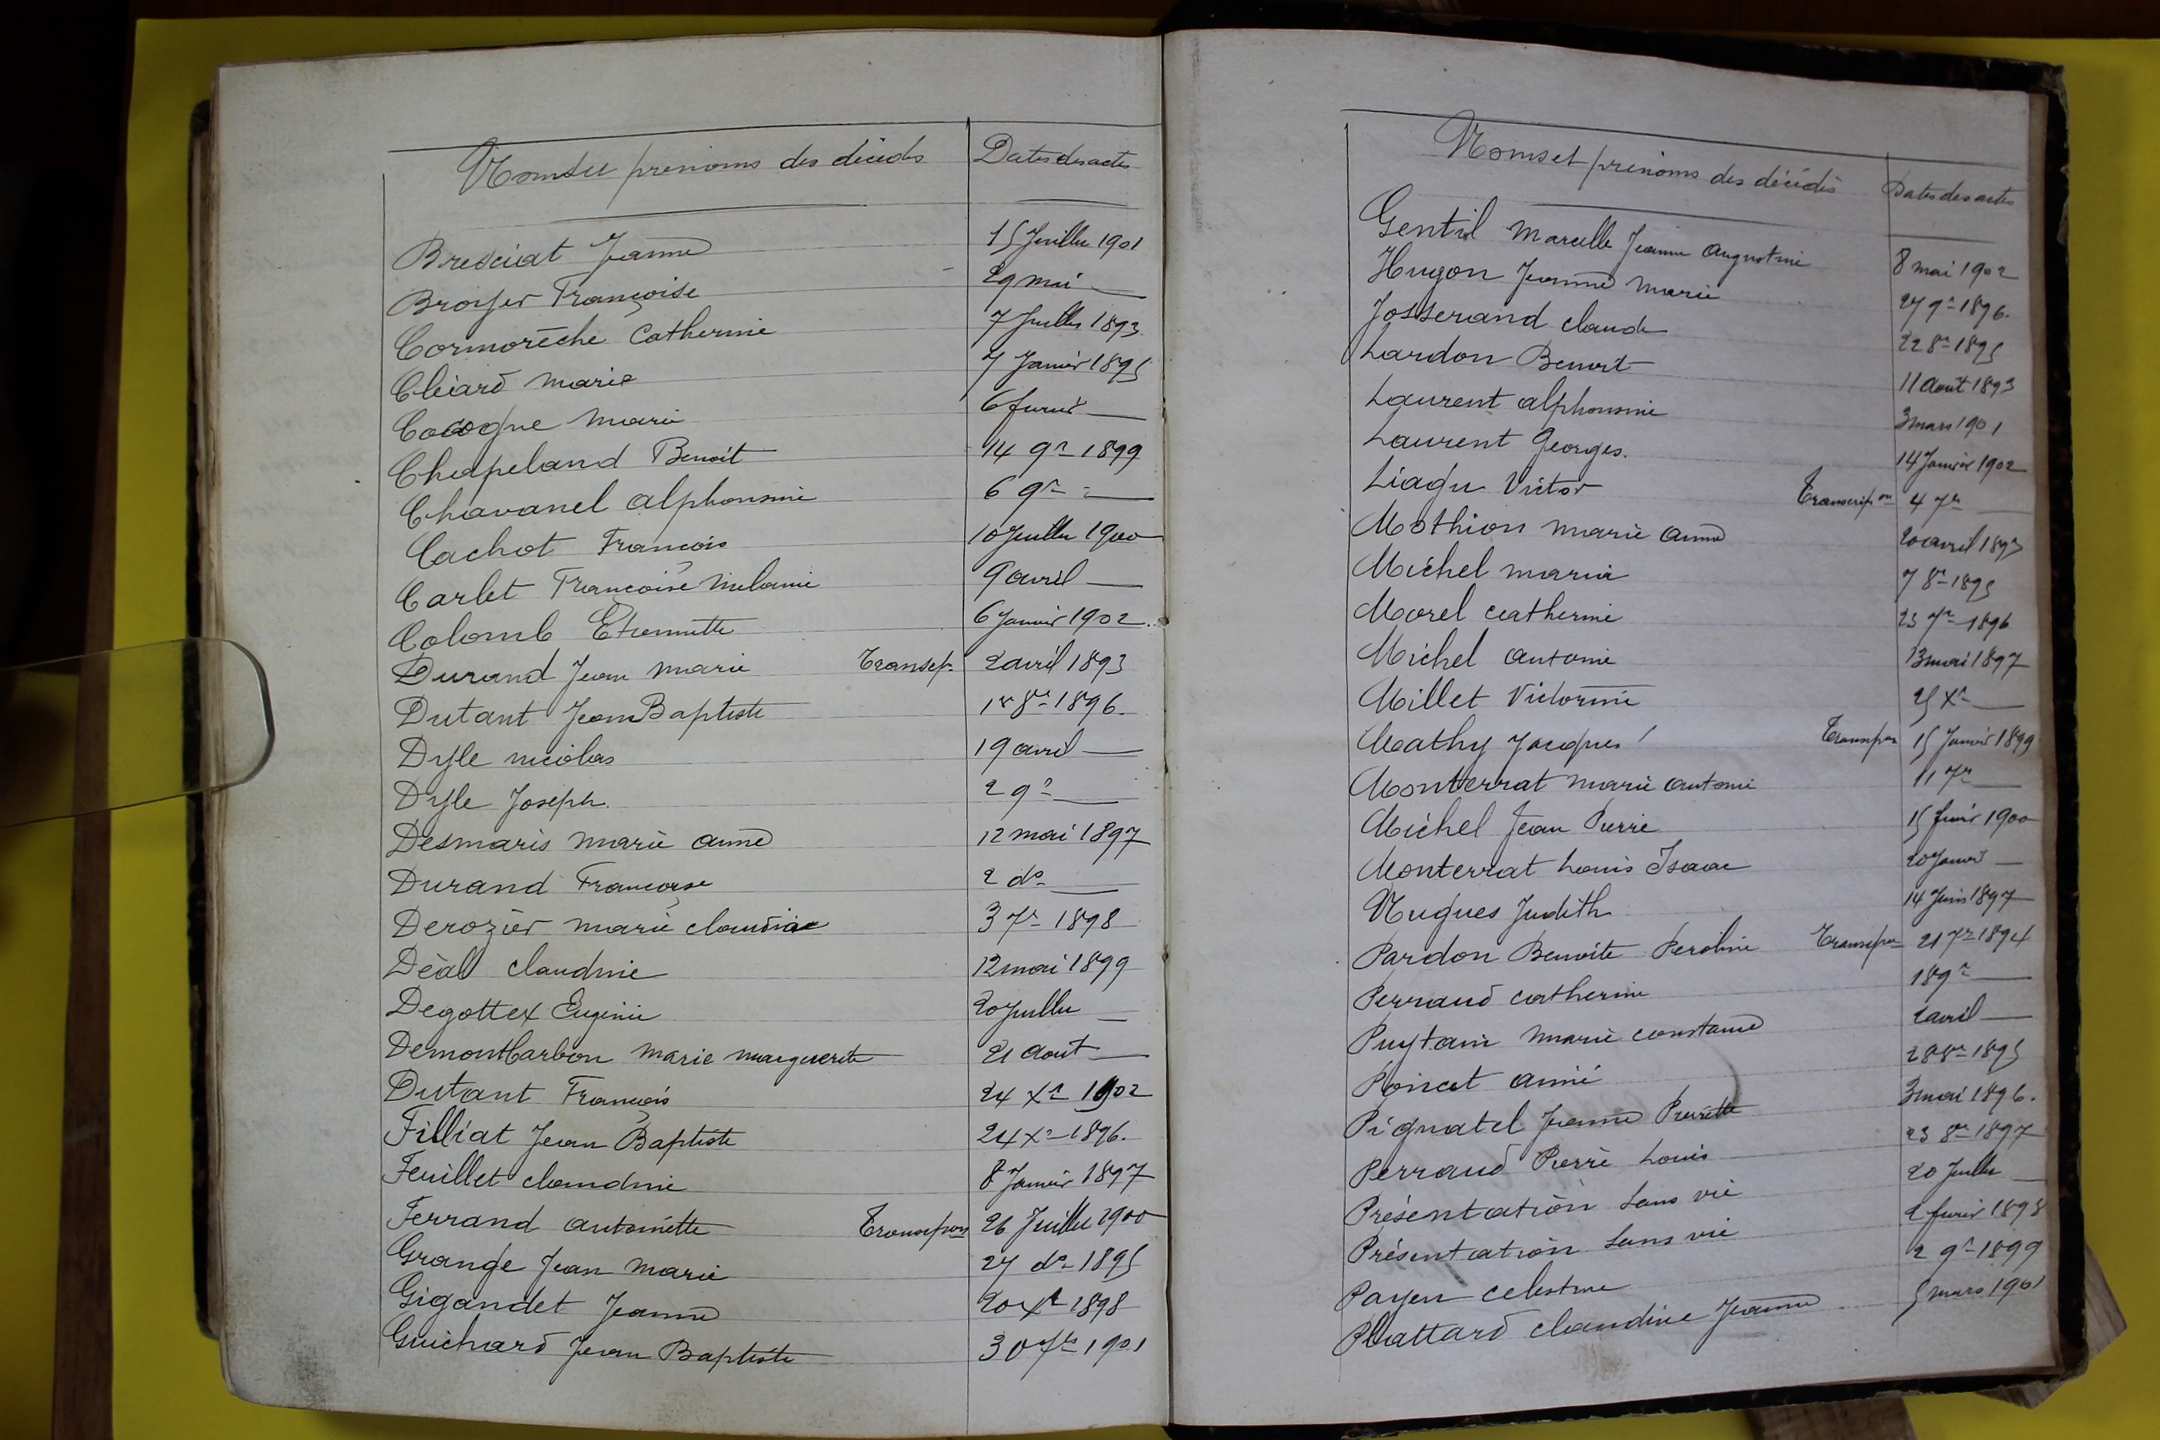 Noms et prénoms des décédés Dates des actes
Bresciat Jeanne 15 Juillet 1901
Broyer Françoise 29 mai —
Cormorèche Catherine 7 Juillet 1893
Cliard Marie 7 Janvier 1895
Cocogne Marie 6 février —
Chapeland Benoit 14 9re 1899
Chavanel alphonsine 6 9re —
Cachot François 10 Juillet 1900
Carlet Françoise Mélanie 9 avril —
Colomb Etiennette 6 Janvier 1902
Durand Jean Marie Transcp. 2 avril 1893
Dutant Jean Baptiste 1er 8re 1896
Dyle nicolas 19 avril —
Dyle Joseph 2 9re —
Desmaris Marie anne 12 mai 1897
Durand Françoise 2 do —
Derozier Marie claudine 3 7re 1898
Déal claudine 12 mai 1899
Degottex Eugénie 20 Juillet —
Demontbarbon Marie Marguerite 21 aout —
Dutant François 24 Xre 1902
Filliat Jean Baptiste 24 Xre 1896
Feuillet claudine 8 Janvier 1897
Ferrand antoinette Transcpon 26 Juillet 1900
Grange Jean Marie 27 do 1895
Gigandet Jeanne 20 Xre 1898
Guichard Jean Baptiste 30 7re 1901
Noms et prénoms des décédés Dates des actes
Gentil Marcelle Jeanne Augustine 8 mai 1902
Hugon Jeanne Marie 27 9re 1896
Josserand claude 22 8re 1895
Lardon Benoit 11 aout 1893
Laurent alphonsine 3 mars 1901
Laurent Georges 14 Janvier 1902
Liagu Victor Transcripon 4 7re —
Mothion Marie anne 20 avril 1893
Michel Maria 7 8re 1895
Morel catherine 23 7re 1896
Michel antoine 13 mai 1897
Millet Victorine 25 Xre —
Mathy Jacques Transcpon 15 Janvier 1899
Monterrat Marie antoine 11 7re —
Michel Jean Pierre 15 février 1900
Monterrat Louis Isaac 20 Janvier —
Nugues Judith 14 Juin 1897
Pardon Benoite Péroline Transcpon 21 7re 1894
Perraud catherine 18 9re —
Puytain Marie constance 2 avril —
Poncet aimé 28 8re 1895
Pignatel Jeanne Pierrette 3 mai 1896.
Perraud Pierre Louis 23 8re 1897
Présentation sans vie 20 Juillet —
Présentation sans vie 2 février 1898
Payen celestine 2 9re 1899
Plattard claudine Jeanne 5 mars 1901